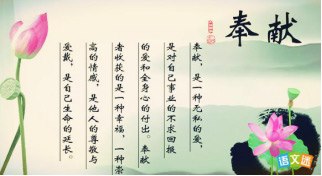 奉献
奉献，是一种无私的爱，
是对自己事业的不求回报
的爱和全身心的付出。奉献
者收获的是一种幸福，一种崇
高的情感，是他人的尊敬与
爱戴，是自己生命的延长。
语文迷